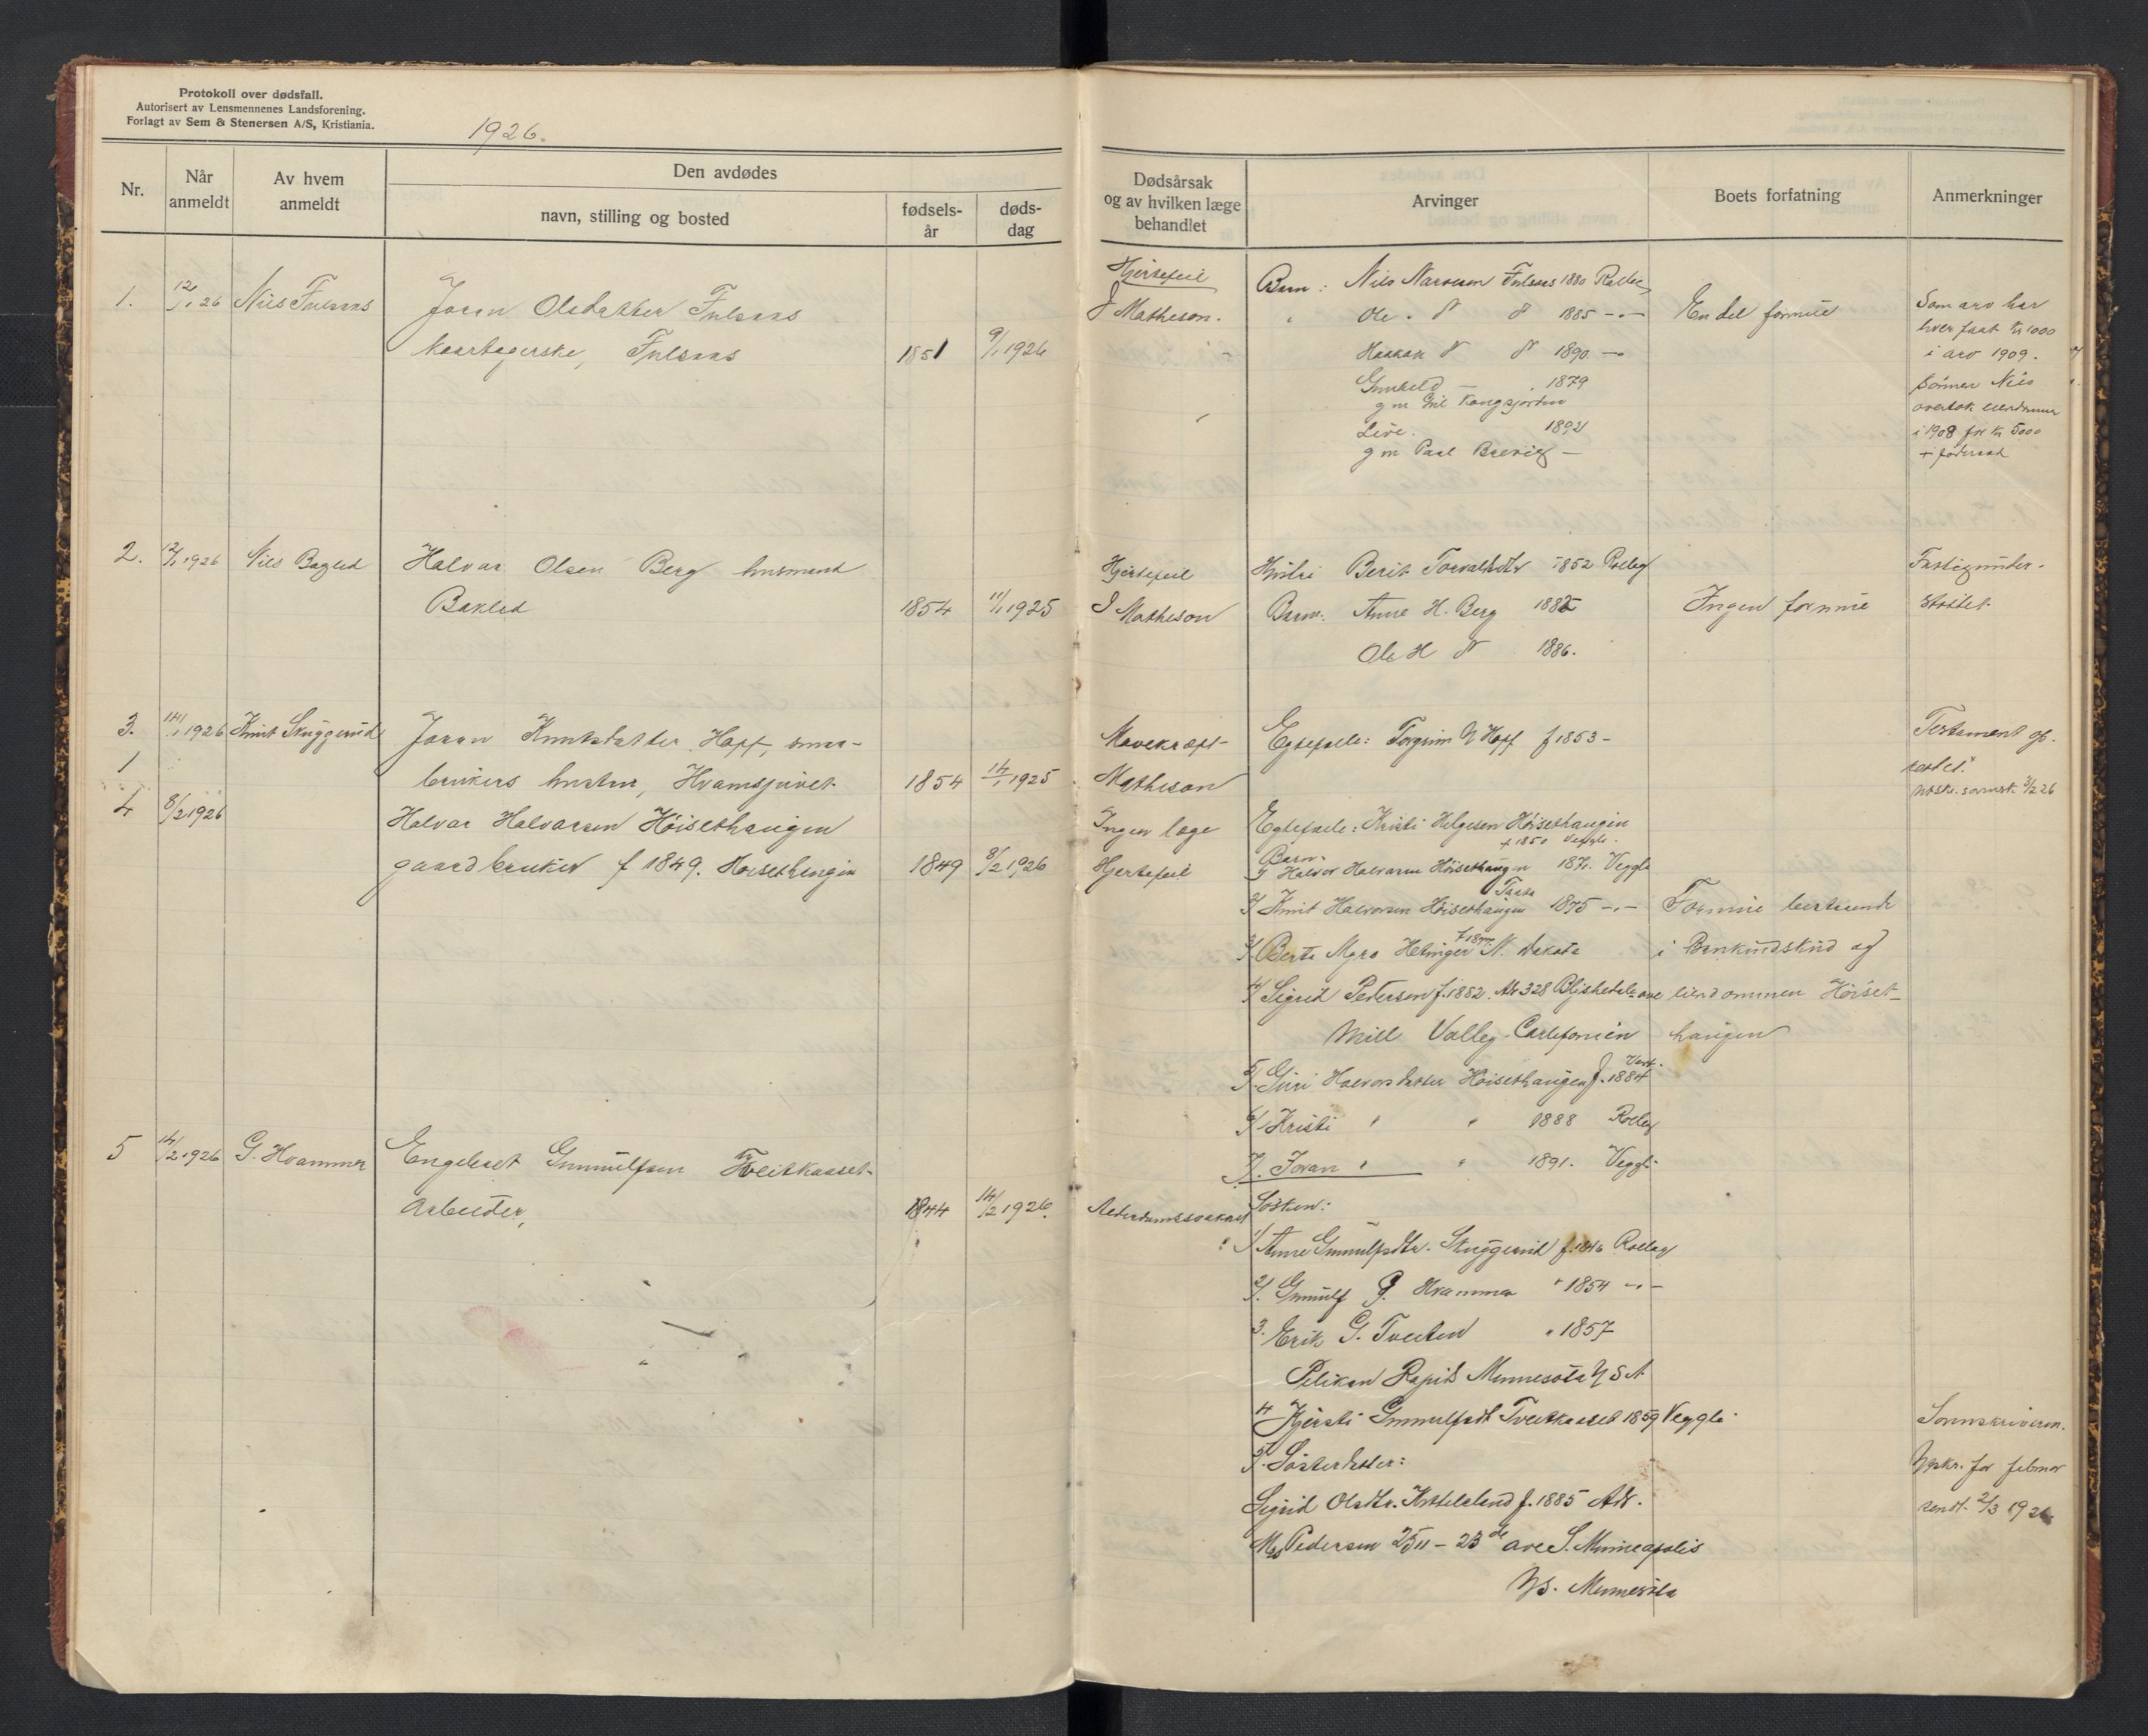 Protokoll over dødsfall.
Autorisert av Lensmennenes Landsforening.
Forlagt av Sem & Stenersen A/S, Kristiania.
1926.
Nr.
Når anmeldt
Av hvem anmeldt
Den avdødes
navn, stilling og bosted
fødsels-år
døds-dag
Dødsårsak og av hvilken læge behandlet
Arvinger
Boets forfatning
Anmerkninger
1. 12/1 26 Nils Fulsaas
Joran Olsdatter Fulsaas
Kaartagerske, Fulsaas 1851 9/1 1926
Hjertefeil
J Matheson.
Barn: Nils Narvesen Fulsaas 1880 Rollag
" Ole 1885 -"-
Haakon 1890 -"
Gunhild - 1879
gm
Live. 1892
gm Paal Brevig -
En del formue
Som arv har
hver faat kr 1000
i arv 1909.
Sönnen Nils
overtok eiendommen
i 1908 for kr 5000
+ föderaad
2. 12/1 1926 Nils Baglid
Halvar Olsen Berg husmand
Baklid 1854 11/1 1925
Hjertefeil
J Matheson
Hustru Berit Torvaldsdtr 1852 Rollag
Barn: Anne H. Berg 1882
Ole H 1886.
Ingen formue
Fattigunder-
støttet
3. 14/1 1926 Knut Skuggerud
Joran Knutsdatter Hoff, smaa-
brukers hustru, Hvamsjuvet 1854 14/1 1925
Mavekræft
Matheson
Egtefælle: Torgrim Hoff f 1853 -
Testament op-
rettet.
Utskr. sorensk. 3/2 26
1
4 8/2 1926
Halvar Halvarsen Höisethaugen
gaardbruker f 1849. Höisethaugen 1849 8/2 1926
Ingen læge
Hjertefeil
Egtefælle: Kristi Helgesen Höisethaugen
f 1850 Veggli.
Barn:
1/ Halvor Halvarsen Höisethaugen 1871. Veggli
2/ Knut Halvorsen Höisethaugen 1875 -"-
3/ Berta Myro Hetinger f 1877 N. Dakota
4/ Sigrid Pedersen f. 1882. Adr 328 ave
Mill Valley Carlefonien
5/ Guri Halvorsdatter Höisethaugen f. 1884
6/ Kristi " " 1888 Rollag
7/. Joran " " 1891. Veggli
Formue bestaaende
i Bankindskud og
eiendommen Höiset-
haugen
5 14/2 1926 G. Hvammen
Engebret Gunnulfsen Tveitkaaset
Arbeider, 1844 14/2 1926
Alderdomssvakhet
Søsken:
1/ Anne Gunnulfsdtr. Skuggerud f. 1846 Rollag
2/. Gunnulf G. Hvammen " 1854 -"-
3. Erik G. Tveiten " 1857
Pelikan Rapids Minnesota U S A
4 Kjersti Gunnulfsdt Tveitkaaset 1859 Veggli
5/. Søsterdatter:
Sigrid Olsdtr. f. 1885 Adr.
Mrs Pedersen 2511 - 23 de ave S. Minneapolis
US. Minnesota
Sorenskriveren.
Utskr. for februar
sendt. 2/3 1926